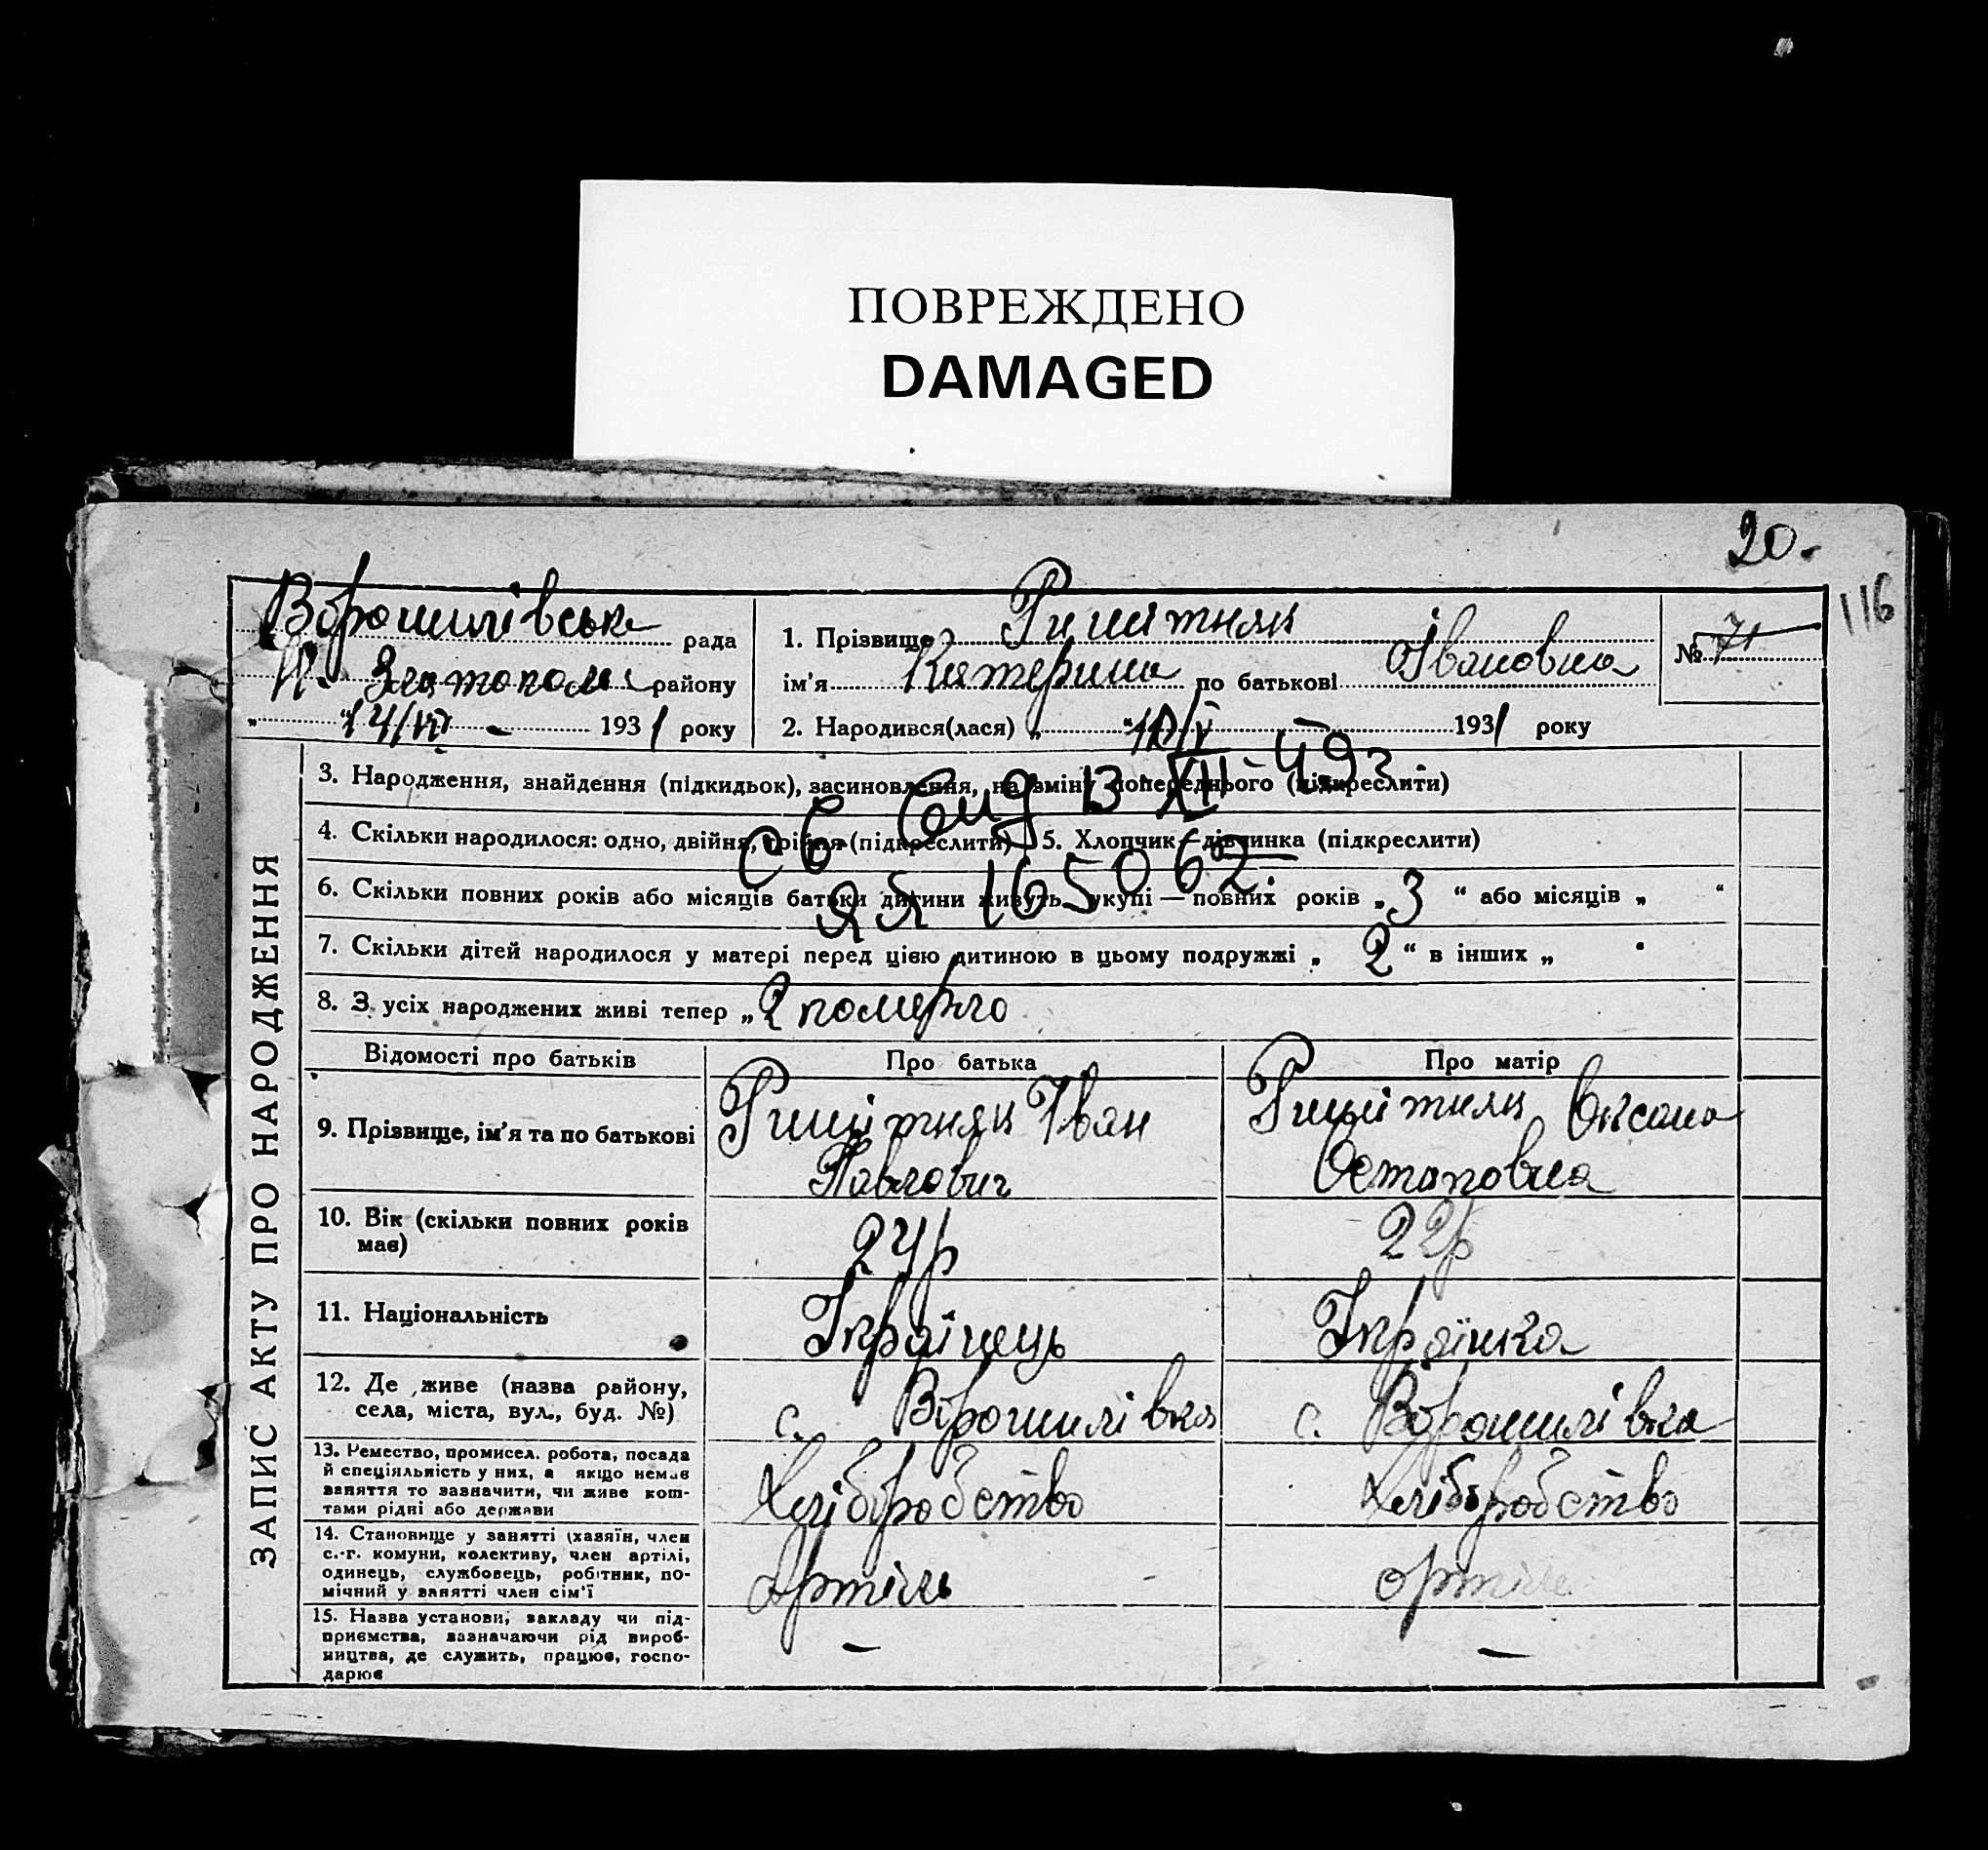 ПОВРЕЖДЕНО
DAMAGED
20.
116
Ворошилівськ рада
Н. Златопол району
„ “ 14/VI - 1931 року
1. Прізвище Ришітняк
ім'я Катерина по батькові Івановна
№ 71
2. Народився(лася) „ “ 10/V - 1931 року
3. Народження, знайдення (підкидьок), засиновлення, на зміну попереднього (підкреслити)
13 XII - 49г.
4. Скільки народилося: одно, двійня, трійня (підкреслити) 5. Хлопчик - дівчинка (підкреслити)
Св
6. Скільки повних років або місяців батьки дитини живуть укупі — повних років „ 3 “ або місяців „ “
165062.
7. Скільки дітей народилося у матері перед цією дитиною в цьому подружжі „ 2 “ в інших „ “
8. З усіх народжених живі тепер „ 2 померло
Відомості про батьків Про батька Про матір
9. Прізвище, ім'я та по батькові
Ришітняк Іван
Павлович
Ришітняк Оксана
Остаповна
10. Вік (скільки повних років
має)
24р
22р
11. Національність Українець Українка
12. Де живе (назва району,
села, міста, вул., буд. №)
с. Ворошилівка
с. Ворошилівка
13. Ремество, промисел. робота, посада
й спеціяльність у них, а якщо немає
заняття то зазначити, чи живе кош-
тами рідні або держави
Хліборобство
Хліборобство
14. Становище у занятті (хазяїн, член
с.-г. комуни, колективу, член артілі,
одинець, службовець, робітник, по-
мічний у занятті член сім'ї
Артіль
артіль
15. Назва установи, закладу чи під-
приємства, зазначаючи рід вироб-
ництва, де служить, працює, госпо-
дарює
—
—
ЗАПИС АКТУ ПРО НАРОДЖЕННЯ